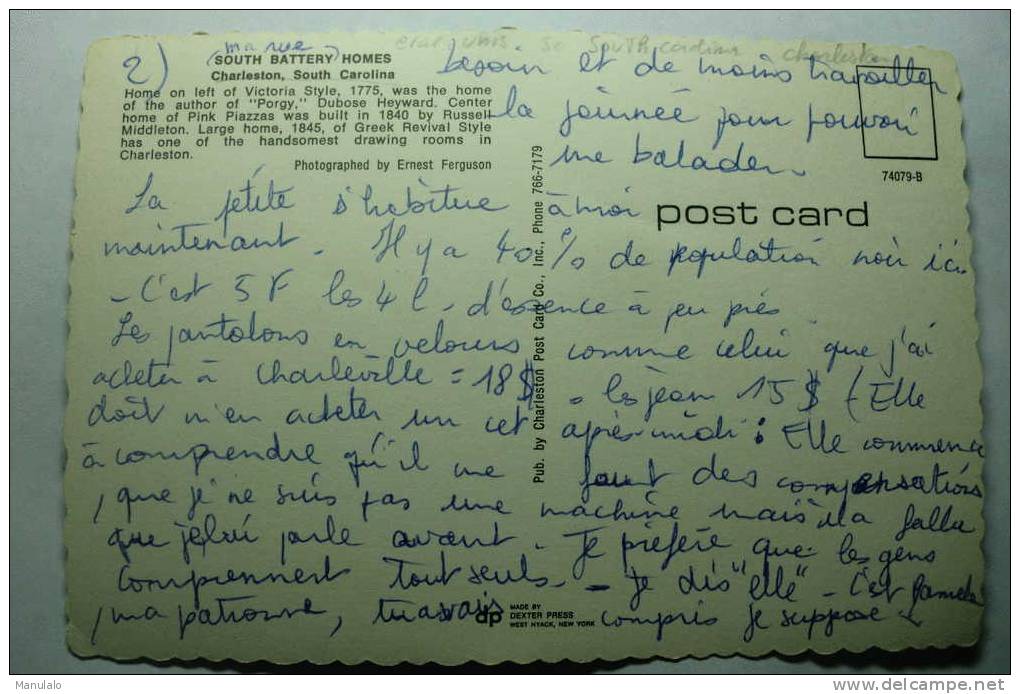 2)
(ma rue)
SOUTH BATTERY HOMES
Charleston, South Carolina
Home on left of Victoria Style, 1775, was the home
of the author of "Porgy," Dubose Heyward. Center
home of Pink Piazzas was built in 1840 by Russell
Middleton. Large home, 1845, of Greek Revival Style
has one of the handsomest drawing rooms in
Charleston.
Photographed by Ernest Ferguson
etat unis SC South carolina charleston
besoin et de moins travailler
la journée pour pouvoir
me balader.
74079-B
post card
Pub. by Charleston Post Card Co., Inc., Phone 766-7179
La petite s'habitue à moi
maintenant. Il y a 40% de population noir ici.
- C'est 5 F les 4 l - d'essence à peu près
Les pantalons en velours comme celui que j'ai
acheter à Charleville = 18$ - les jean 15$ (Elle
doit m'en acheter un cet après-midi : Elle commence
à comprendre qu'il me faut des compensations
, que je ne suis pas une machine mais il a fallu
que je lui parle avant - Je préfère que les gens
comprennent tout seuls. - Je dis "elle" - C'est Pamela
, ma patronne, tu avais compris je suppose
dp
MADE BY
DEXTER PRESS
WEST NYACK, NEW YORK
Manulalo
delcampe.net